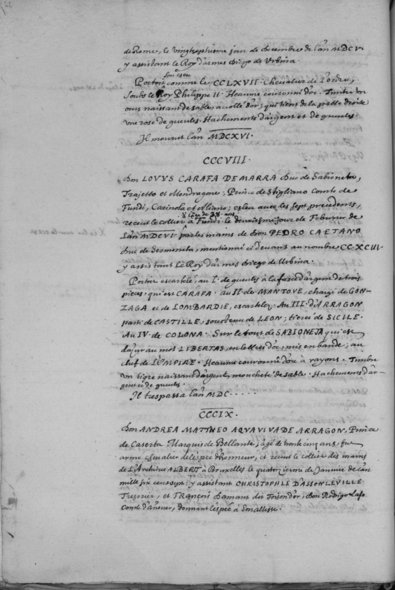 de Rome, le vingtseptieme jour de decembre de l'an MDCVI
y assistant le Roy d'armes diego de Urbina.
son escu
Portoit comme le CCLXVII. Chevalier de l'ordre,
soubs le Roy Philippe II. Heaume couronné d'or. Timbre un
ours naissant de sable, accollé d'or, qui tient de la patte droite
une rose de gueules. Hachements d'argent et de gueules.
Il mourut l'an MDCXVI.
CCCVIII.
Don LOVYS CARAFA DE MARRA duc de Sabioneta,
Trajetto et Mondragone; Prince de Stigliano Comte de
Fundi, Carinola et
receut le collier à le deuxiesme jour de Febvrier de
l'an MDCVI par les mains de don PEDRO CAETANO
duc de Sermoneta, mentionné ci devant au nombre CCXCVI
y assistant le Roy d'armes diego de Urbina.
Portoit escartelé; au I. de gueules à la fasce d'argent de trois
pieces, qui est CARAFA. Au II. de MANTOVE, chargé de GON-
ZAGA et de LOMBARDIE, escartelez. Au III. d'ARRAGON
parti de CASTILLE, soustenu de LEON; tiercé de SICILE.
Au IV. de COLONA. Sur le tout de SABIONETA qui est
d'azur au mot LIBERTAS, en lettres d'or, mis en bande; au
chef de l'EMPIRE. Heaume couronné d'or à rayons. Timbre
un tigre naissant d'argent, moucheté de sable. Hachements d'ar-
gent et de gueules.
Il trespassa l'an MDC . . . .
CCCIX.
Don ANDREA MATTHEO AQVAVIVA DE ARRAGON, Prince
de Caserta Marquis de Bellante, agé de trente cinq ans fut
armé chevalier de l'espée d'honneur, et receut le collier des mains
de L'Archiduc ALBERT à Bruxelles le quatriesme de Janvier de l'an
mille six cens sept; y assistant CHRISTOPHLE D'ASSONLEVILLE
Tresorier, et François Damant du Toison d'or; Don Rodrigo Laso
Conte d'Añover, donnant l'espée à Son Altesse.